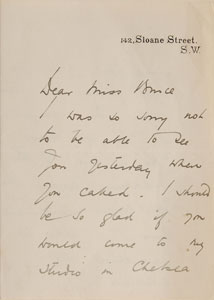 142, Sloane Street.
S.W.
Dear Miss
I was so sorry not
to be able to see
you yesterday when
you called. I should
be so glad if you
would come to my
studio in Chelsea